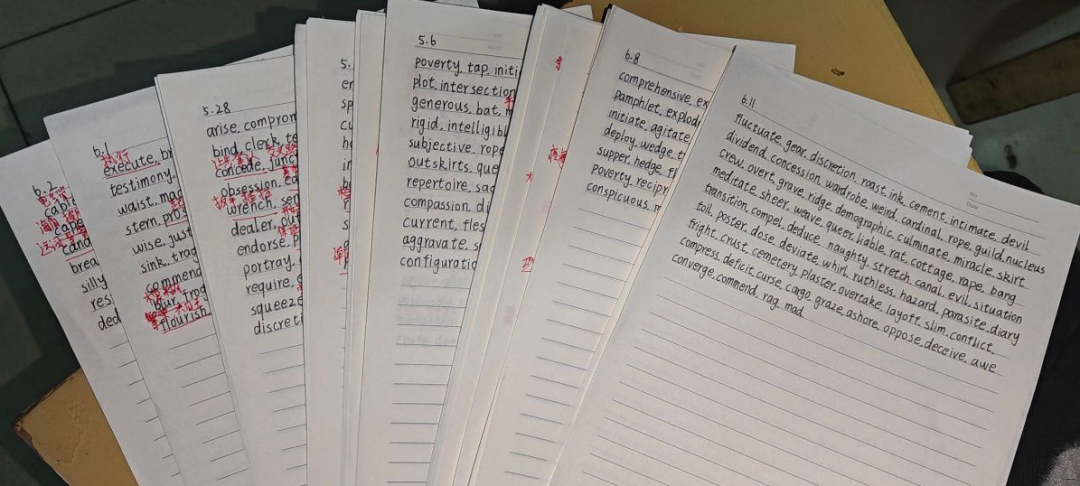 6.2
cabl
cape
cand
brea
silly
res
ded
6.1
execute, br
testimony,
waist, mag
stern, pros
wise, just
sink, trag
commend
blur, frog
flourish,
5.28
arise, compron
bind, clerk, te
concede, junc
obsession, ca
wrench, sen
dealer, ou
endorse, p
portray,
require,
squeeze
discreti
5.
er
sp
cu
he
in
5.6
poverty, tap, initi
plot, intersection
generous, bat,
rigid, intelligibl
subjective, rope
outskirts, que
repertoire, sac
compassion, di
current, fles
aggravate, s
configuratio
6.8
comprehensive, ex
pamphlet, explod
initiate, agitate
deploy, wedge, t
supper, hedge, f
poverty, recipr
conspicuous, m
6.11
fluctuate, gear, discretion, roast, ink, cement, intimate, devil
dividend, concession, wardrobe, weird, cardinal, rope, guild, nucleus
crew, overt, grave, ridge, demographic, culminate, miracle, skirt
meditate, sheer, wave, queer, liable, rat, cottage, rape, bang
transition, compel, deduce, naughty, stretch, canal, evil, situation
toil, poster, dose, deviate, whirl, ruthless, hazard, parasite, diary
fright, crust, cemetery, plaster, overtake, layoff, slim, conflict,
compress, deficit, curse, cargo, graze, ashore, oppose, deceive, awe
converge, commend, rag, mad